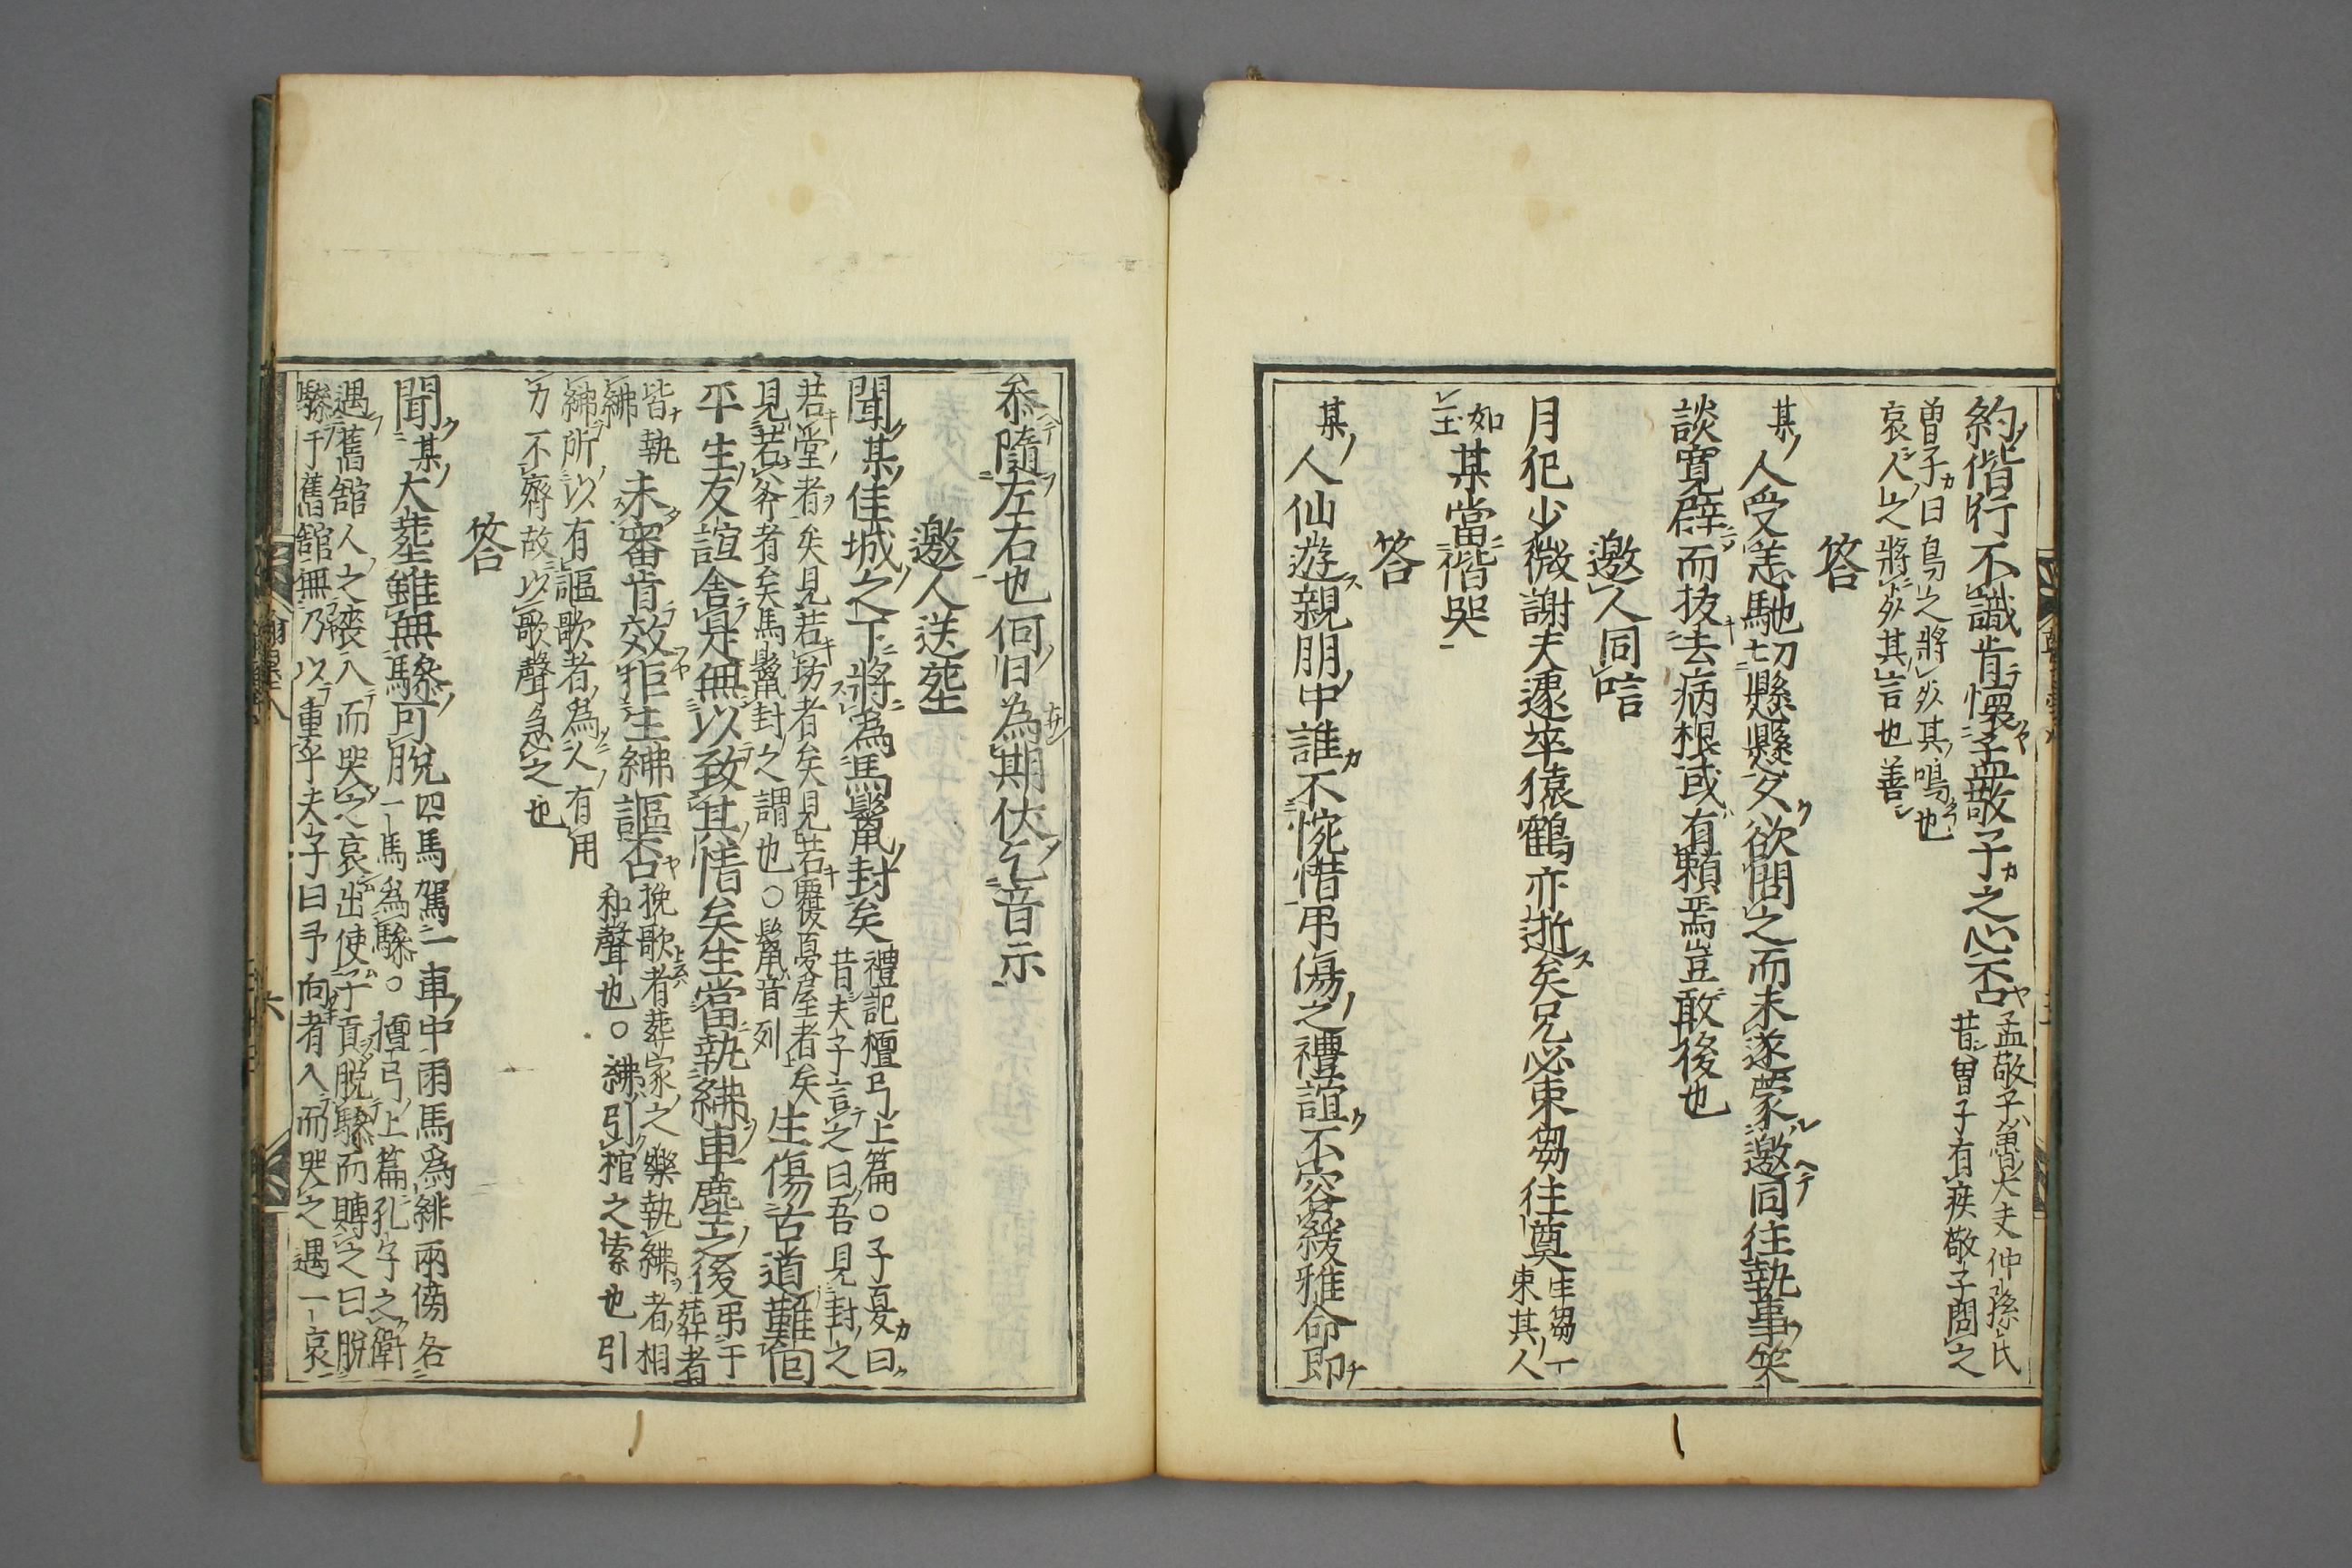 約偕行不識肯懷孟敬子之心否 孟敬子魯大夫仲孫氏
昔曽子有疾敬子問之
曽子曰鳥之將死其鳴也
哀人之將死其言也善
答
某人受恙馳切懸懸久欲問之而未遂蒙邀同往執事笑
談寬辟而抜去病根或有頼焉豈敢後也
邀人同唁
月犯少微謝夫遽卒猿鶴亦逝矣兄必束芻往奠 生芻一
束其人
如
玉 某當偕哭
答
某人仙遊親朋中誰不惋惜弔傷之禮誼不容緩雅命即
忝隨左右也何日為期伏乞音示
邀人送塟
聞某佳城之下將為馬鬛封矣 禮記檀弓上篇○子夏曰
昔夫子言之曰吾見封之
若堂者矣見若坊者矣見若覆夏屋者矣
見若斧者矣馬鬛封之謂也○鬛音列 生傷古道難同
平生友誼舍是無以致其情矣生當執紼車塵之後 弔于
葬者
皆執
紼 未審肯效拒生紼謳否 挽歌者葬家之樂執紼者相
和聲也○紼引棺之索也引
紼所以有謳歌者為人有用
力不齊故以歌聲急之也
答
聞某大塟雖無驂可脫 四馬駕一車中兩馬為緋兩傍各
一馬為驂○檀弓上篇孔子之衛
遇舊舘人之喪入而哭之哀出使子貢脫驂而賻之曰脫
驂于舊舘無乃以重乎夫子曰予向者入而哭之遇一哀